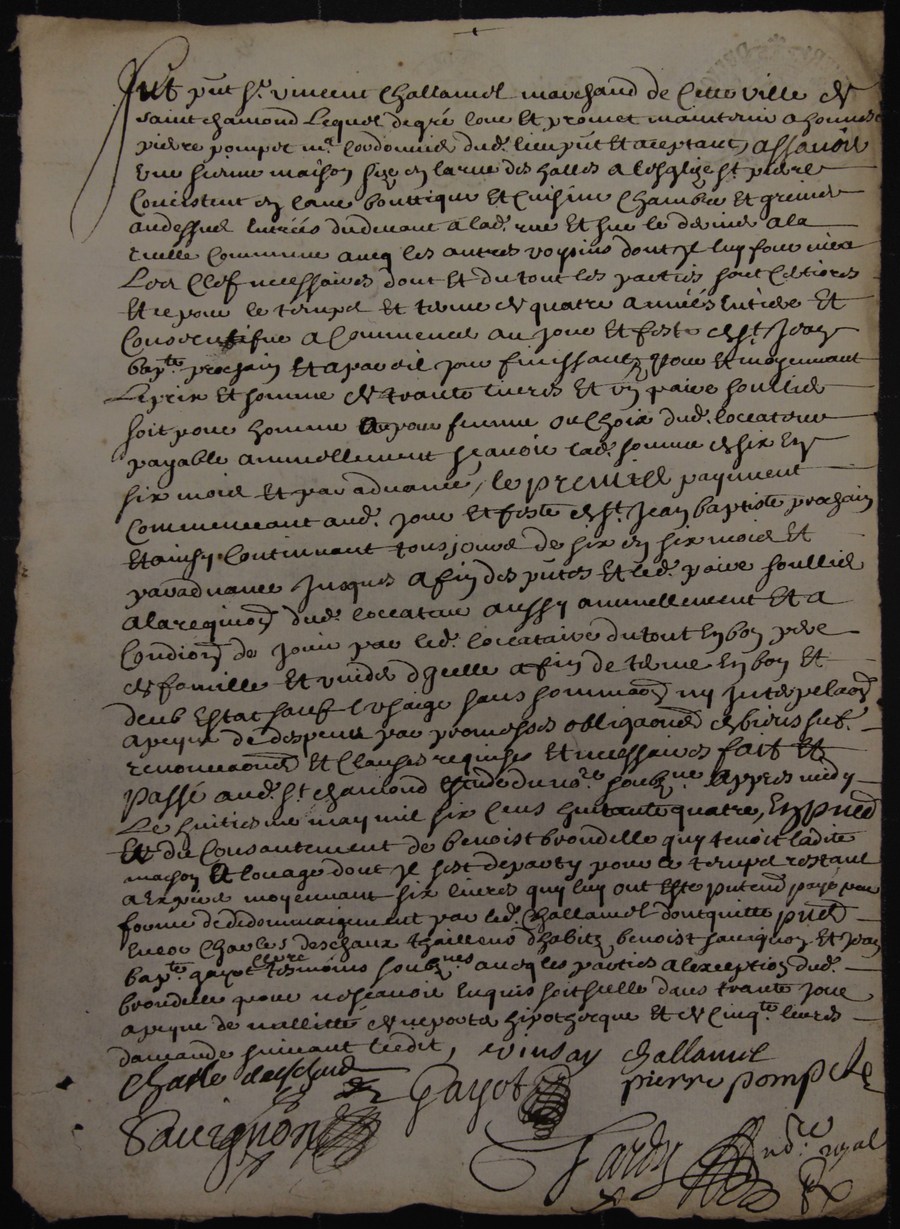 Fut pnt Sr. vincent Challamel marchand de Cette ville de
saint chamond Lequel de gré loue Et promet maintenir a honneste
pierre pompet mr. Cordonnier dud. lieu pnt et aceptant, assavoir
Une sienne maison size en la rue des halles a lesglize st. pierre
Concistent en Cave bouttique Et Cuisine Chambre et grenier
audessus Entrées du devant a lad. rue Et sur le derrier a la
ruelle Commune aveq les autres voysins dont Il luy fournira
Les Clef necessaires dont Et du tout les parties sont Certiores
Et ce pour le temps Et terme de quatre années Entiere Et
Consecutifve a Commencer au jour Et feste de st. Jean
bapte. prochain Et a pareil jour finissant, Pour Et moyennant
Le prix Et somme de trante livres Et un paire soullier
soit pour homme ou pour femme au Choix dud. loccateur
payable annuellement scavoir lad. somme de six En
six mois Et par advance, le premier payment
Commencant aud. jour Et feste de st. Jean baptiste prochain
Et ainsy Continuant tousjours de six en six mois Et
par advance Jusques a fin des pntes Et led. paire soullier
a la requion dud. loccateur aussy annuellement Et a
Condion de jouir par led. loccataire du tout En bon pere
de famille Et vuider dycelle a fin de terme En bon Et
deub Estat sauf l'usaige sans sommaon ny Interpelaon
a peyne de despens par promesses obligaons de biens sub.
renonciaons Et Clauses requises Et necessaires fait Et
passé aud. st. chamond Estude du nore. soubzne. appres midy
Le huitiesme may mil six Cens huitante quatre, En pnce
Et du Consantement de benoist brondelle quy tenoit ladite
maison Et louage dont Il sest departy pour le temps restant
a Expirer moyennant six livres quy luy ont Esté pntemt payé par
forme de dedommaigement par led. Challamel dont quitte pnce
Encor Charles deschaux thailleur d'habitz benoist sauvignon Et Jean
bapte. gayot clerc tesmoins soubznes aveq les parties a lexception dud.
brondelle pour ne scavoir Enquis soit scelle dans trante jour
a peyne de nullitté de ne porter hipothecque Et de Cinqte. livres
damande suivant l'edit,
vinsan challamel
Charle deschaud
Gayot
pierre pompete
Sauvignon
Fardy
nore royal